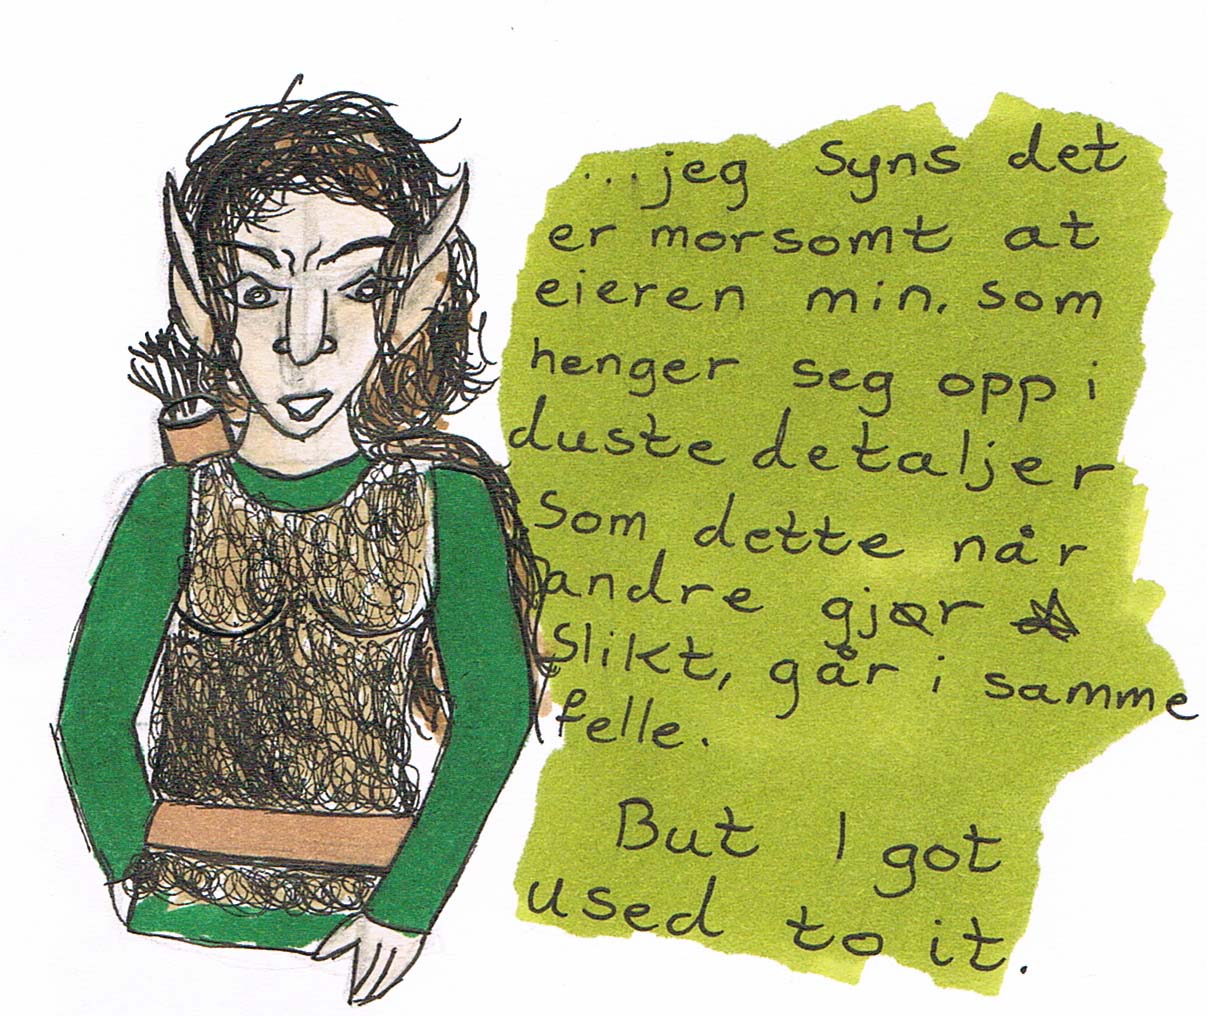 ...jeg syns det
er morsomt at
eieren min, som
henger seg opp i
duste detaljer
som dette når
andre gjør
slikt, går i samme
felle.
But I got
used to it.